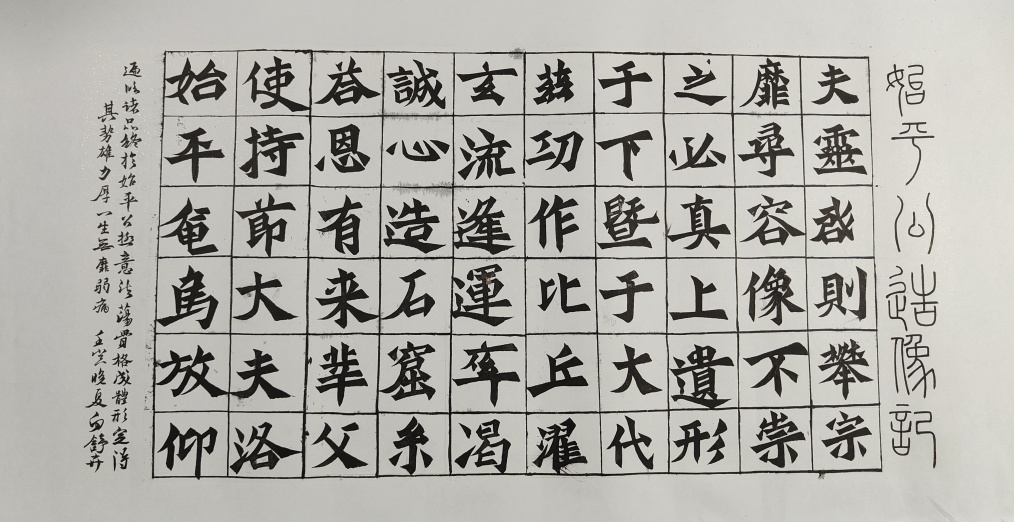 始平公造像記
夫靈啟則攀宗
靡尋容像不崇
之必真上遺形
于下暨于大代
兹功作比丘濯
玄流逢運率渴
誠心造石窟系
荅恩有来業父
使持節大夫洛
始平奄焉放仰
遍臨诸品終於始平公極意疏蕩骨格成體形定得
其勢雄力厚一生無靡弱病 壬寅晚夏白舒卉